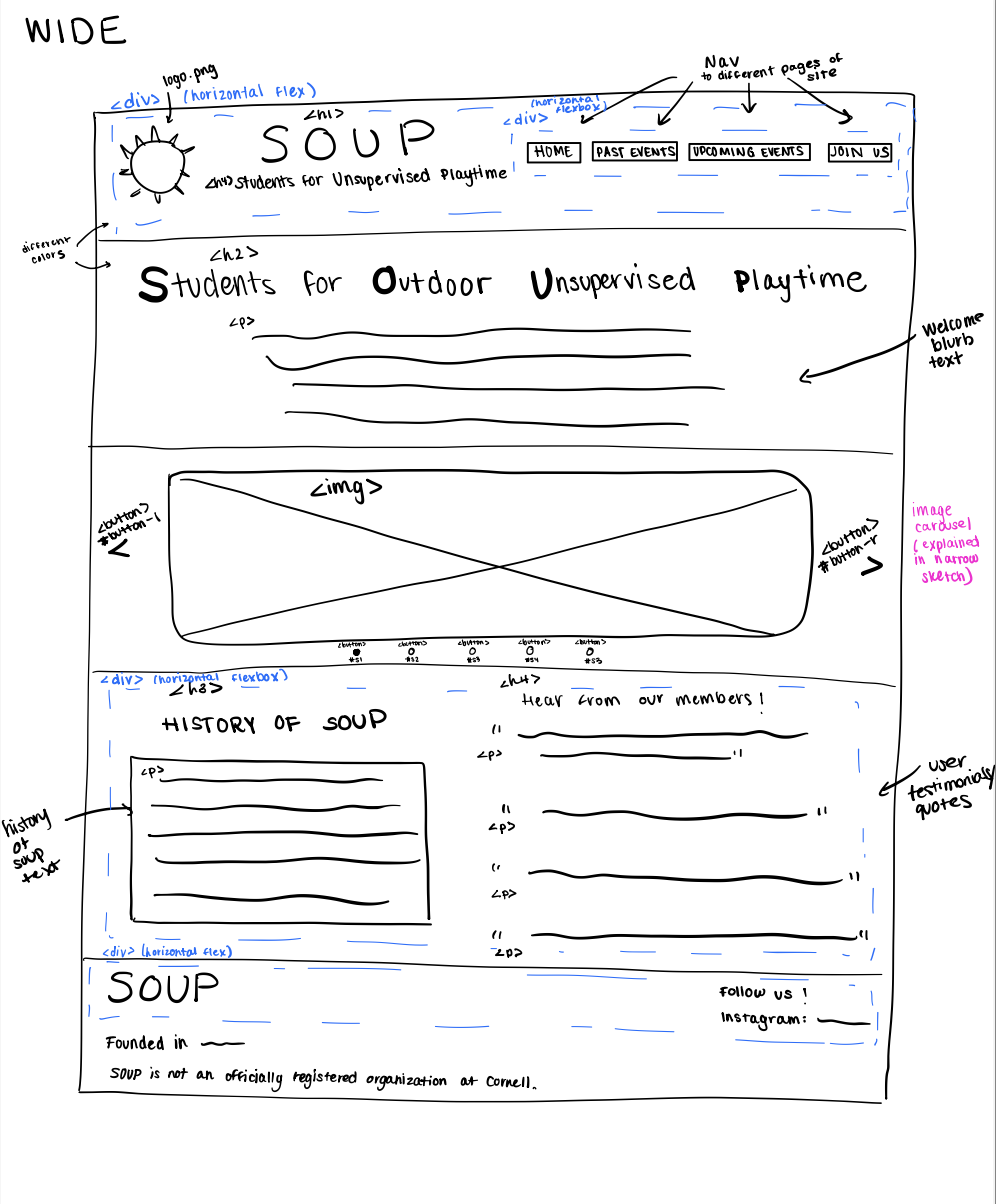 WIDE
logo.png
<div> (horizontal flex)
Nav
to different pages of
site
(horizontal
flexbox)
<div>
<h1>
SOUP
<h4> Students for Unsupervised Playtime
HOME
PAST EVENTS
UPCOMING EVENTS
JOIN US
different
colors
<h2>
Students for Outdoor Unsupervised Playtime
<p>
Welcome
blurb
text
<img>
<button>
#button-l
<
<button>
#button-r
>
image
carousel
(explained
in narrow
sketch)
<button> <button> <button> <button> <button>
#s1 #s2 #s3 #s4 #s5
<div> (horizontal flexbox)
<h3>
HISTORY OF SOUP
<p>
history
of
soup
text
<h4>
Hear from our members!
"
<p> "
" "
<p>
" "
<p>
" "
<p>
user
testimonials
quotes
<div> (horizontal flex)
SOUP
Follow us!
Instagram:
Founded in
SOUP is not an officially registered organization at Cornell.